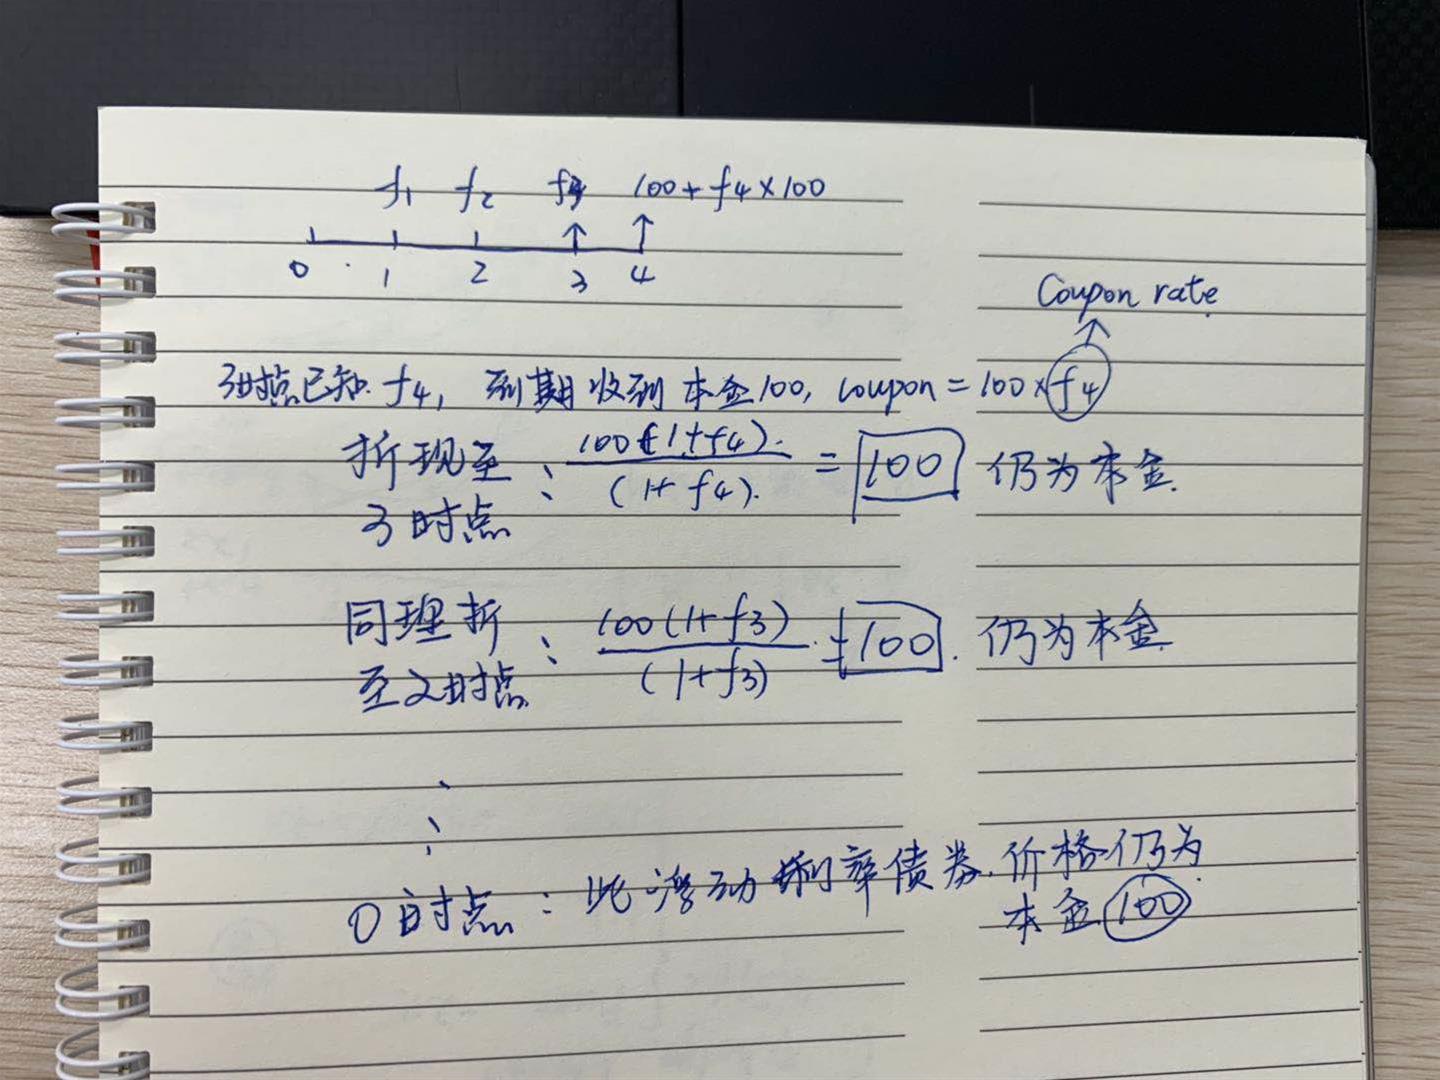 f1 f2 f3 100+f4×100
0 1 2 3 4
Coupon rate.
3时点已知 f4, 到期收到本金100, coupon = 100×f4
折现至3时点: 100(1+f4) / (1+f4) = 100 仍为本金.
同理折至2时点: 100(1+f3) / (1+f3) = 100. 仍为本金.
0时点: 此浮动利率债券价格仍为
本金100